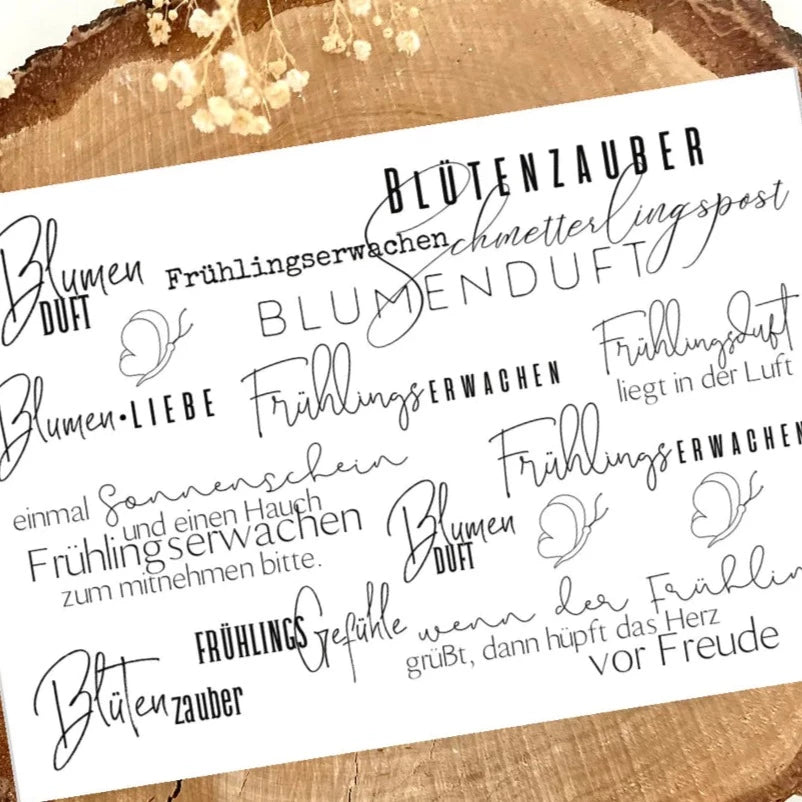 BLÜTENZAUBER
Schmetterlingspost
Frühlingserwachen
Blumen
DUFT
BLUMENDUFT
Frühlingsduft
liegt in der Luft
Blumen•LIEBE
FrühlingsERWACHEN
FrühlingsERWACHEN
einmal Sonnenschein
und einen Hauch
Frühlingserwachen
zum mitnehmen bitte.
Blumen
DUFT
wenn der Frühlin
grüßt, dann hüpft das Herz
vor Freude
FRÜHLINGSGefühle
Blütenzauber